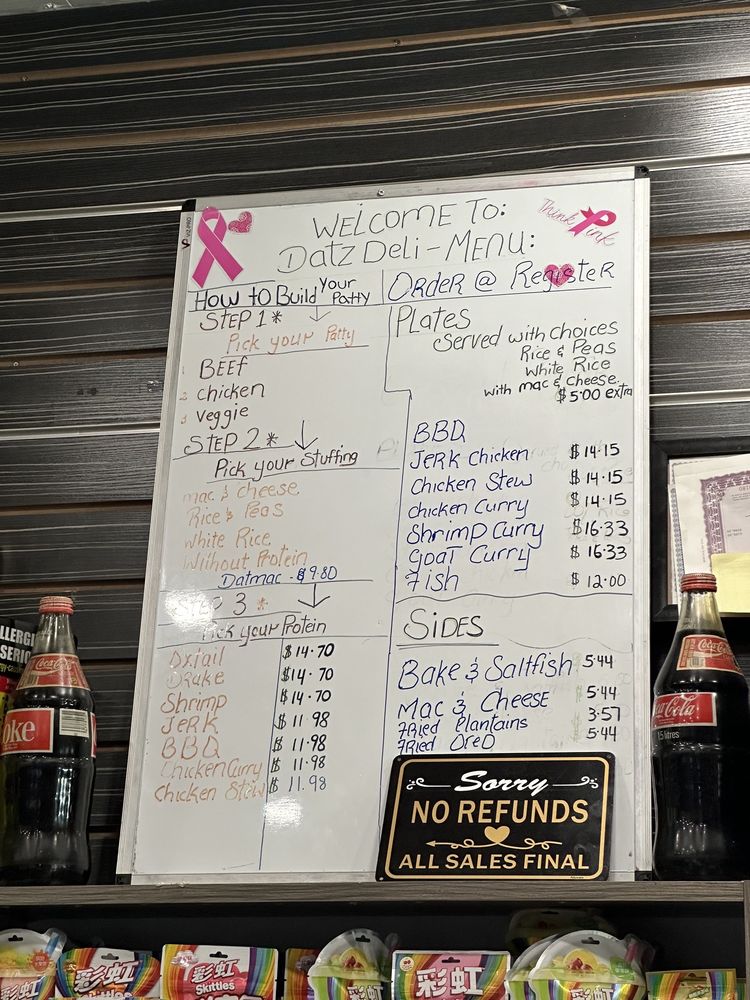 WELCOME TO:
Datz Deli - MENU:
Think Pink
How to Build Your Patty
STEP 1 *
Pick your Patty
1 BEEF
2 chicken
3 veggie
STEP 2 *
Pick your Stuffing
mac & cheese
Rice & Peas
white Rice
Without Protein
Datmac - $9.80
STEP 3 *
Pick your Protein
Oxtail $14.70
Drake $14.70
Shrimp $14.70
JERK $11.98
BBQ $11.98
Chicken Curry $11.98
Chicken Stew $11.98
ORDER @ RegisteR
PLates
Served with Choices
Rice & Peas
White Rice
with mac & cheese
$5.00 extra
BBQ
JERK Chicken $14.15
Chicken Stew $14.15
chicken Curry $14.15
Shrimp Curry $16.33
Goat Curry $16.33
Fish $12.00
SIDES
Bake & Saltfish 5.44
Mac & Cheese 5.44
Fried Plantains 3.57
Fried Oreo 5.44
Sorry
NO REFUNDS
ALL SALES FINAL
Coca-Cola
oke
Coca-Cola
Coca-Cola
1.5 litres
LLERGI
SERIO
彩虹
Skittles
彩虹
Skittles
彩虹
Skittles